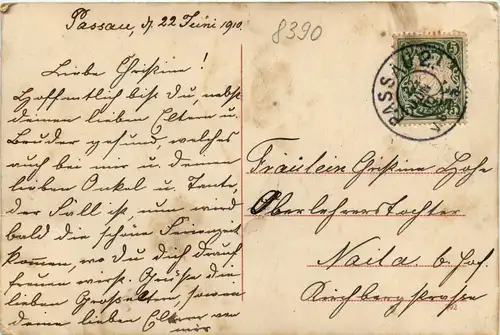 Passau, d. 22 Juni 1910.
8390
Liebe Christine!
Hoffentlich bist Du, nebst
deinen lieben Eltern u.
Bruder gesund, welches
auch bei mir u. deine
lieben Onkel u. Tante,
der Fall ist, nun wird
bald die schöne Ferienzeit
kommen, wo Du dich darauf
freuen wirst. Grüße die
lieben Großeltern, sowie
deine lieben Eltern von
mir
5
PASSAU 2.
Fräulein Christine Hohe
Oberlehrerstochter
Naila b. Hof.
Kirchbergstrasse